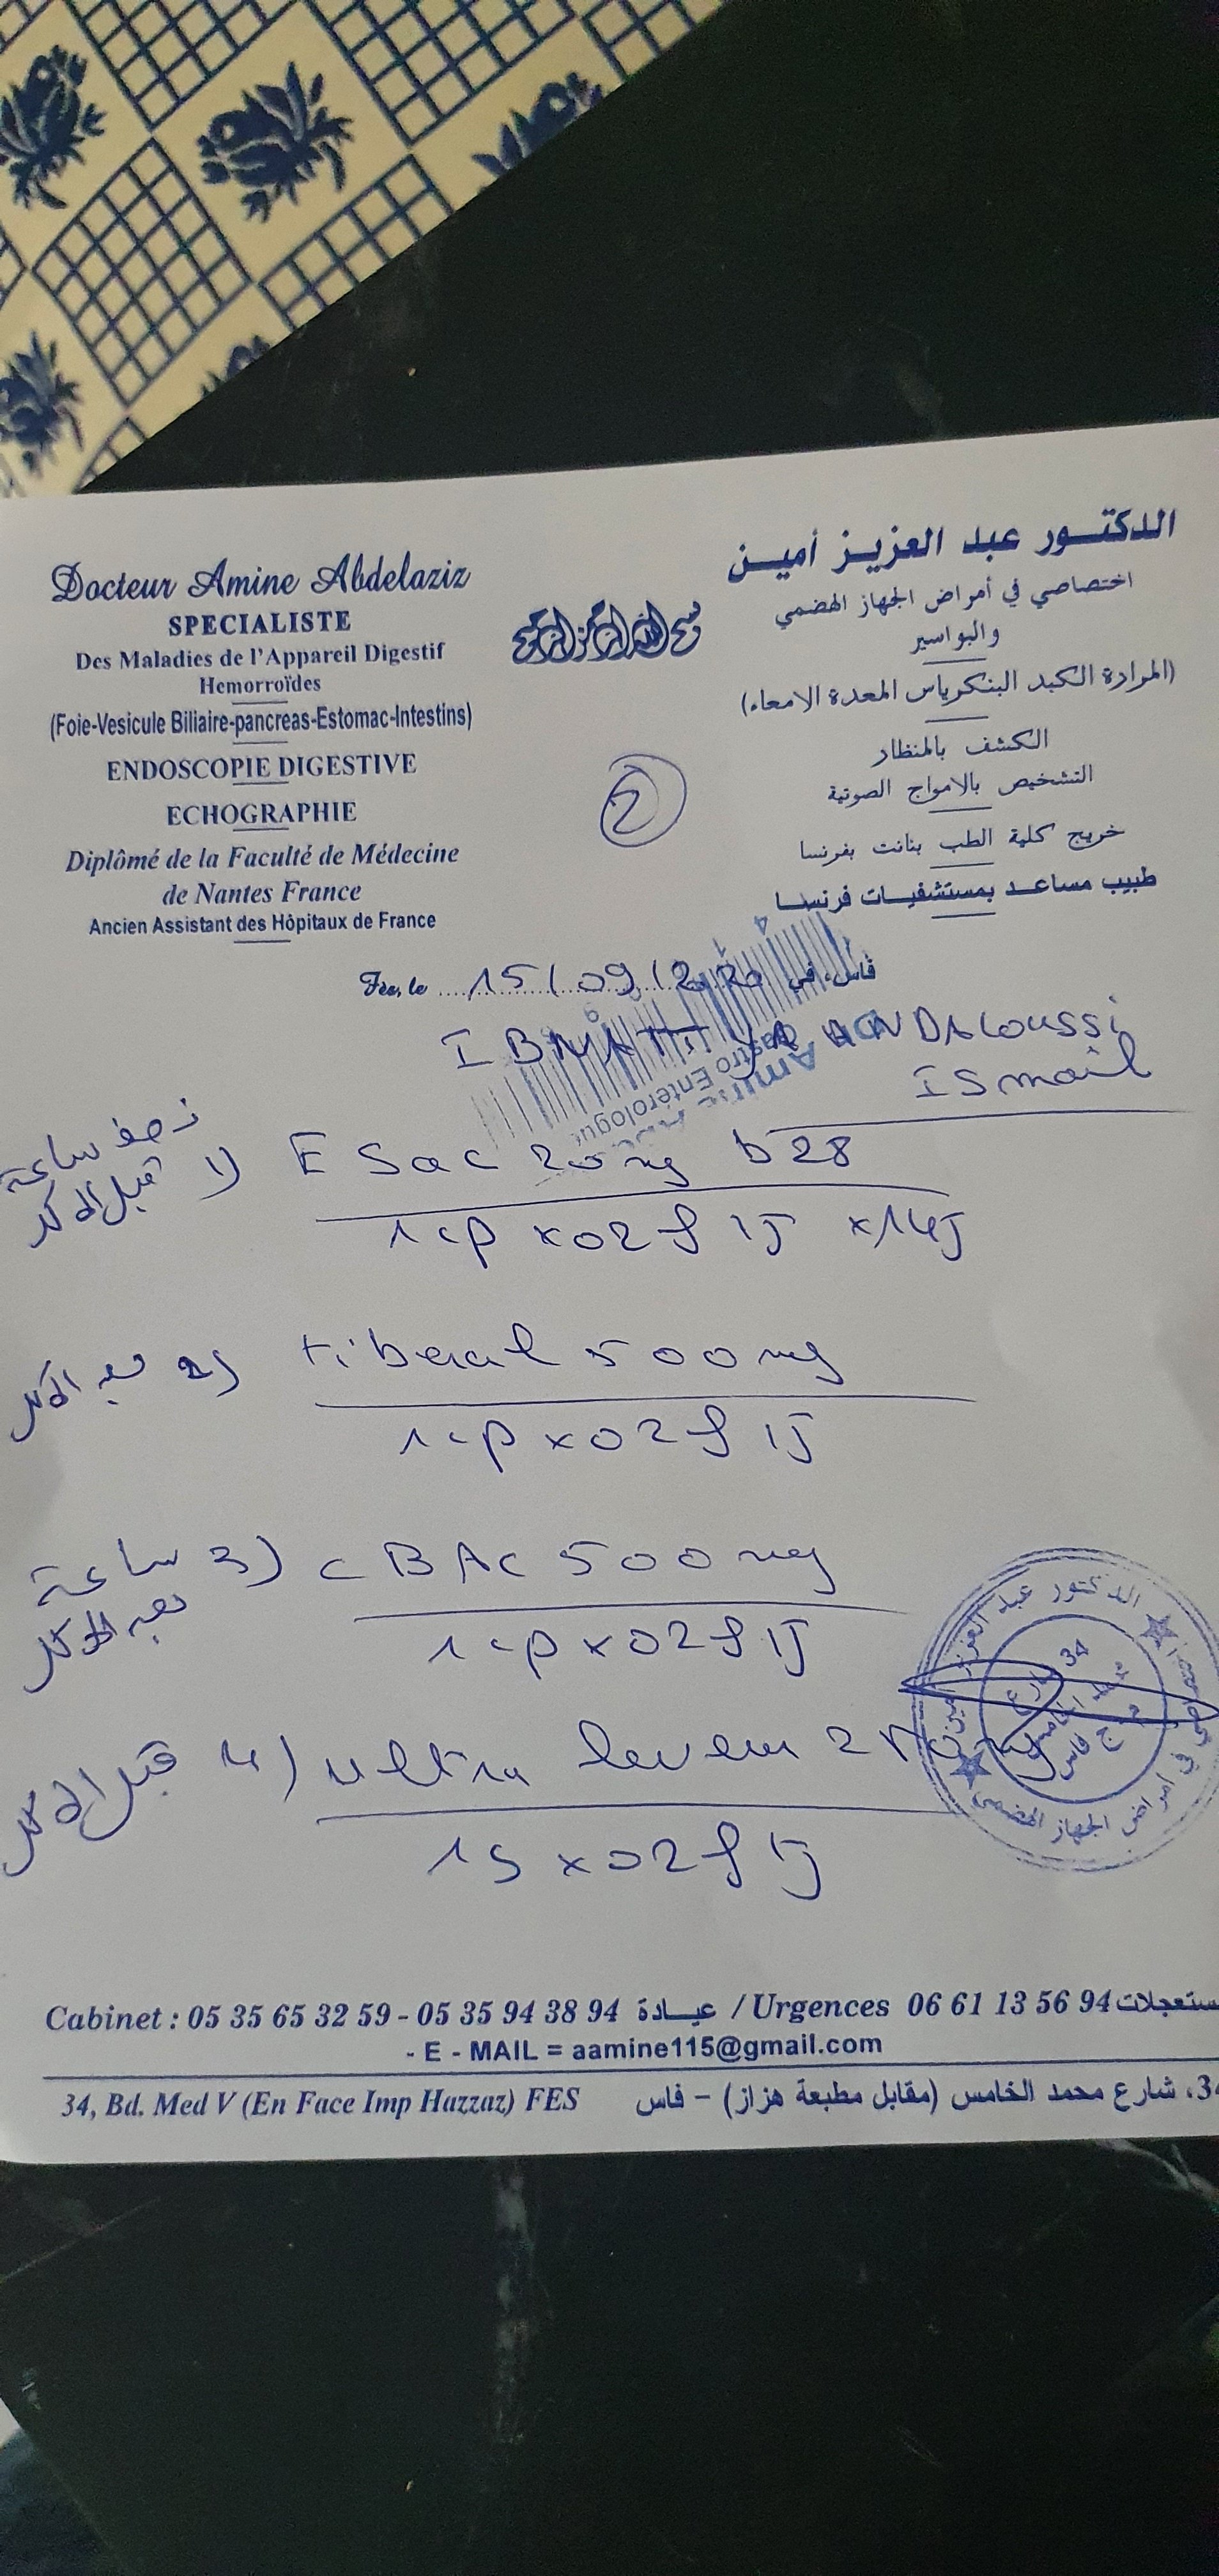 Docteur Amine Abdelaziz
SPECIALISTE
Des Maladies de l'Appareil Digestif
Hemorroïdes
(Foie-Vesicule Biliaire-pancreas-Estomac-Intestins)
ENDOSCOPIE DIGESTIVE
ECHOGRAPHIE
Diplômé de la Faculté de Médecine
de Nantes France
Ancien Assistant des Hôpitaux de France
بسم الله الرحمن الرحيم
2
الدكتور عبد العزيز أمين
اختصاصي في أمراض الجهاز الهضمي
والبواسير
(المرارة الكبد البنكرياس المعدة الامعاء)
الكشف بالمنظار
التشخيص بالامواج الصوتية
خريج كلية الطب بنانت بفرنسا
طبيب مساعد بمستشفيات فرنسا
Fès, le 15/09/2020 فاس، في
IBNATTYA ANDALOUSSI
ISmail
نصف ساعة
قبل الاكل
1) ESac 20 mg b28
1cp x 02 f 1J x 14J
بعد الاكل 2) tiberal 500 mg
1cp x 02 f 1J
ساعة
بعد الاكل
3) CBAC 500 mg
1cp x 02 f 1J
قبل الاكل 4) ultra levure
1S x 02 f 1J
الدكتور عبد العزيز أمين
اختصاصي في امراض الجهاز الهضمي
34 شارع
محمد الخامس
فاس
Cabinet : 05 35 65 32 59 - 05 35 94 38 94 عيادة / Urgences 06 61 13 56 94
- E - MAIL = aamine115@gmail.com
34, Bd. Med V (En Face Imp Hazzaz) FES
34، شارع محمد الخامس (مقابل مطبعة هزاز) – فاس